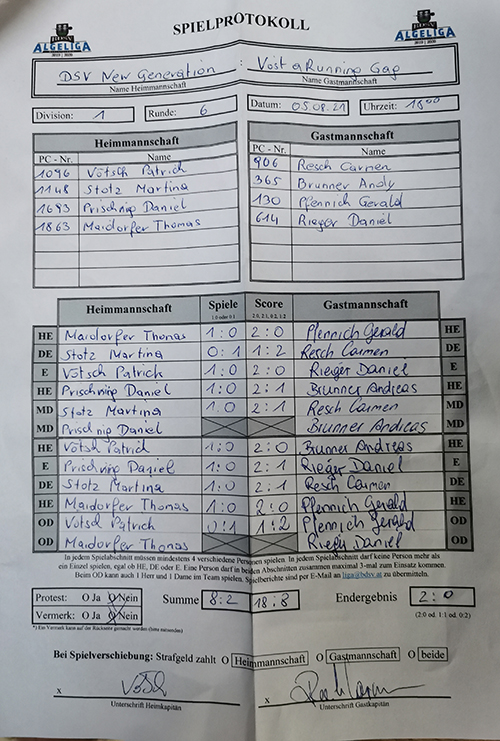 SPIELPROTOKOLL
BDSV
ALGELIGA
2019 | 2020
BDSV
ALGELIGA
2019 | 2020
DSV New Generation : Vost a Running Gag
Name Heimmannschaft Name Gastmannschaft
Division: 1 Runde: 6 Datum: 05.08.21 Uhrzeit: 18 00
Heimmannschaft Gastmannschaft
PC - Nr. Name PC - Nr. Name
1096 Vötsch Patrich 906 Resch Carmen
1148 Stotz Martina 365 Brunner Andy
1693 Prischnig Daniel 130 Pfennich Gerald
1863 Maidorfer Thomas 614 Rieger Daniel
Heimmannschaft Spiele Score Gastmannschaft
1:0 oder 0:1 2:0, 2:1, 0:2, 1:2
HE Maidorfer Thomas 1:0 2:0 Pfennich Gerald HE
DE Stotz Martina 0:1 1:2 Resch Carmen DE
E Vötsch Patrich 1:0 2:0 Rieger Daniel E
HE Prischnig Daniel 1:0 2:1 Brunner Andreas HE
MD Stotz Martina 1.0 2:1 Resch Carmen MD
MD Prischnig Daniel Brunner Andreas MD
HE Vötsch Patrich 1:0 2:0 Brunner Andreas HE
E Prischnig Daniel 1:0 2:1 Rieger Daniel E
DE Stotz Martina 1:0 2:1 Resch Carmen DE
HE Maidorfer Thomas 1:0 2:0 Pfennich Gerald HE
OD Vötsch Patrich 0:1 1:2 Pfennich Gerald OD
OD Maidorfer Thomas Rieger Daniel OD
In jedem Spielabschnitt müssen mindestens 4 verschiedene Personen spielen. In jedem Spielabschnitt darf keine Person mehr als
ein Einzel spielen, egal ob HE, DE oder E. Eine Person darf in beiden Abschnitten zusammen maximal 3-mal zum Einsatz kommen.
Beim OD kann auch 1 Herr und 1 Dame im Team spielen. Spielberichte sind per E-Mail an liga@bdsv.at zu übermitteln.
Protest: O Ja O Nein Summe 8:2 18:8 Endergebnis 2:0
Vermerk: *) O Ja O Nein (2:0 od. 1:1 od. 0:2)
*) Ein Vermerk kann auf der Rückseite gemacht werden (bitte ankreuzen)
Bei Spielverschiebung: Strafgeld zahlt O Heimmannschaft O Gastmannschaft O beide
x x
Unterschrift Heimkapitän Unterschrift Gastkapitän